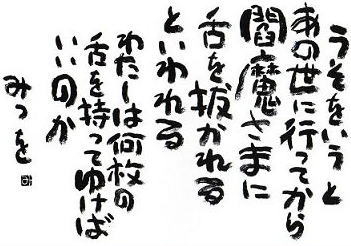 うそをいうと
あの世に行ってから
閻魔さまに
舌を抜かれる
といわれる
わたしは何枚の
舌を持ってゆけば
いいのか
みつを